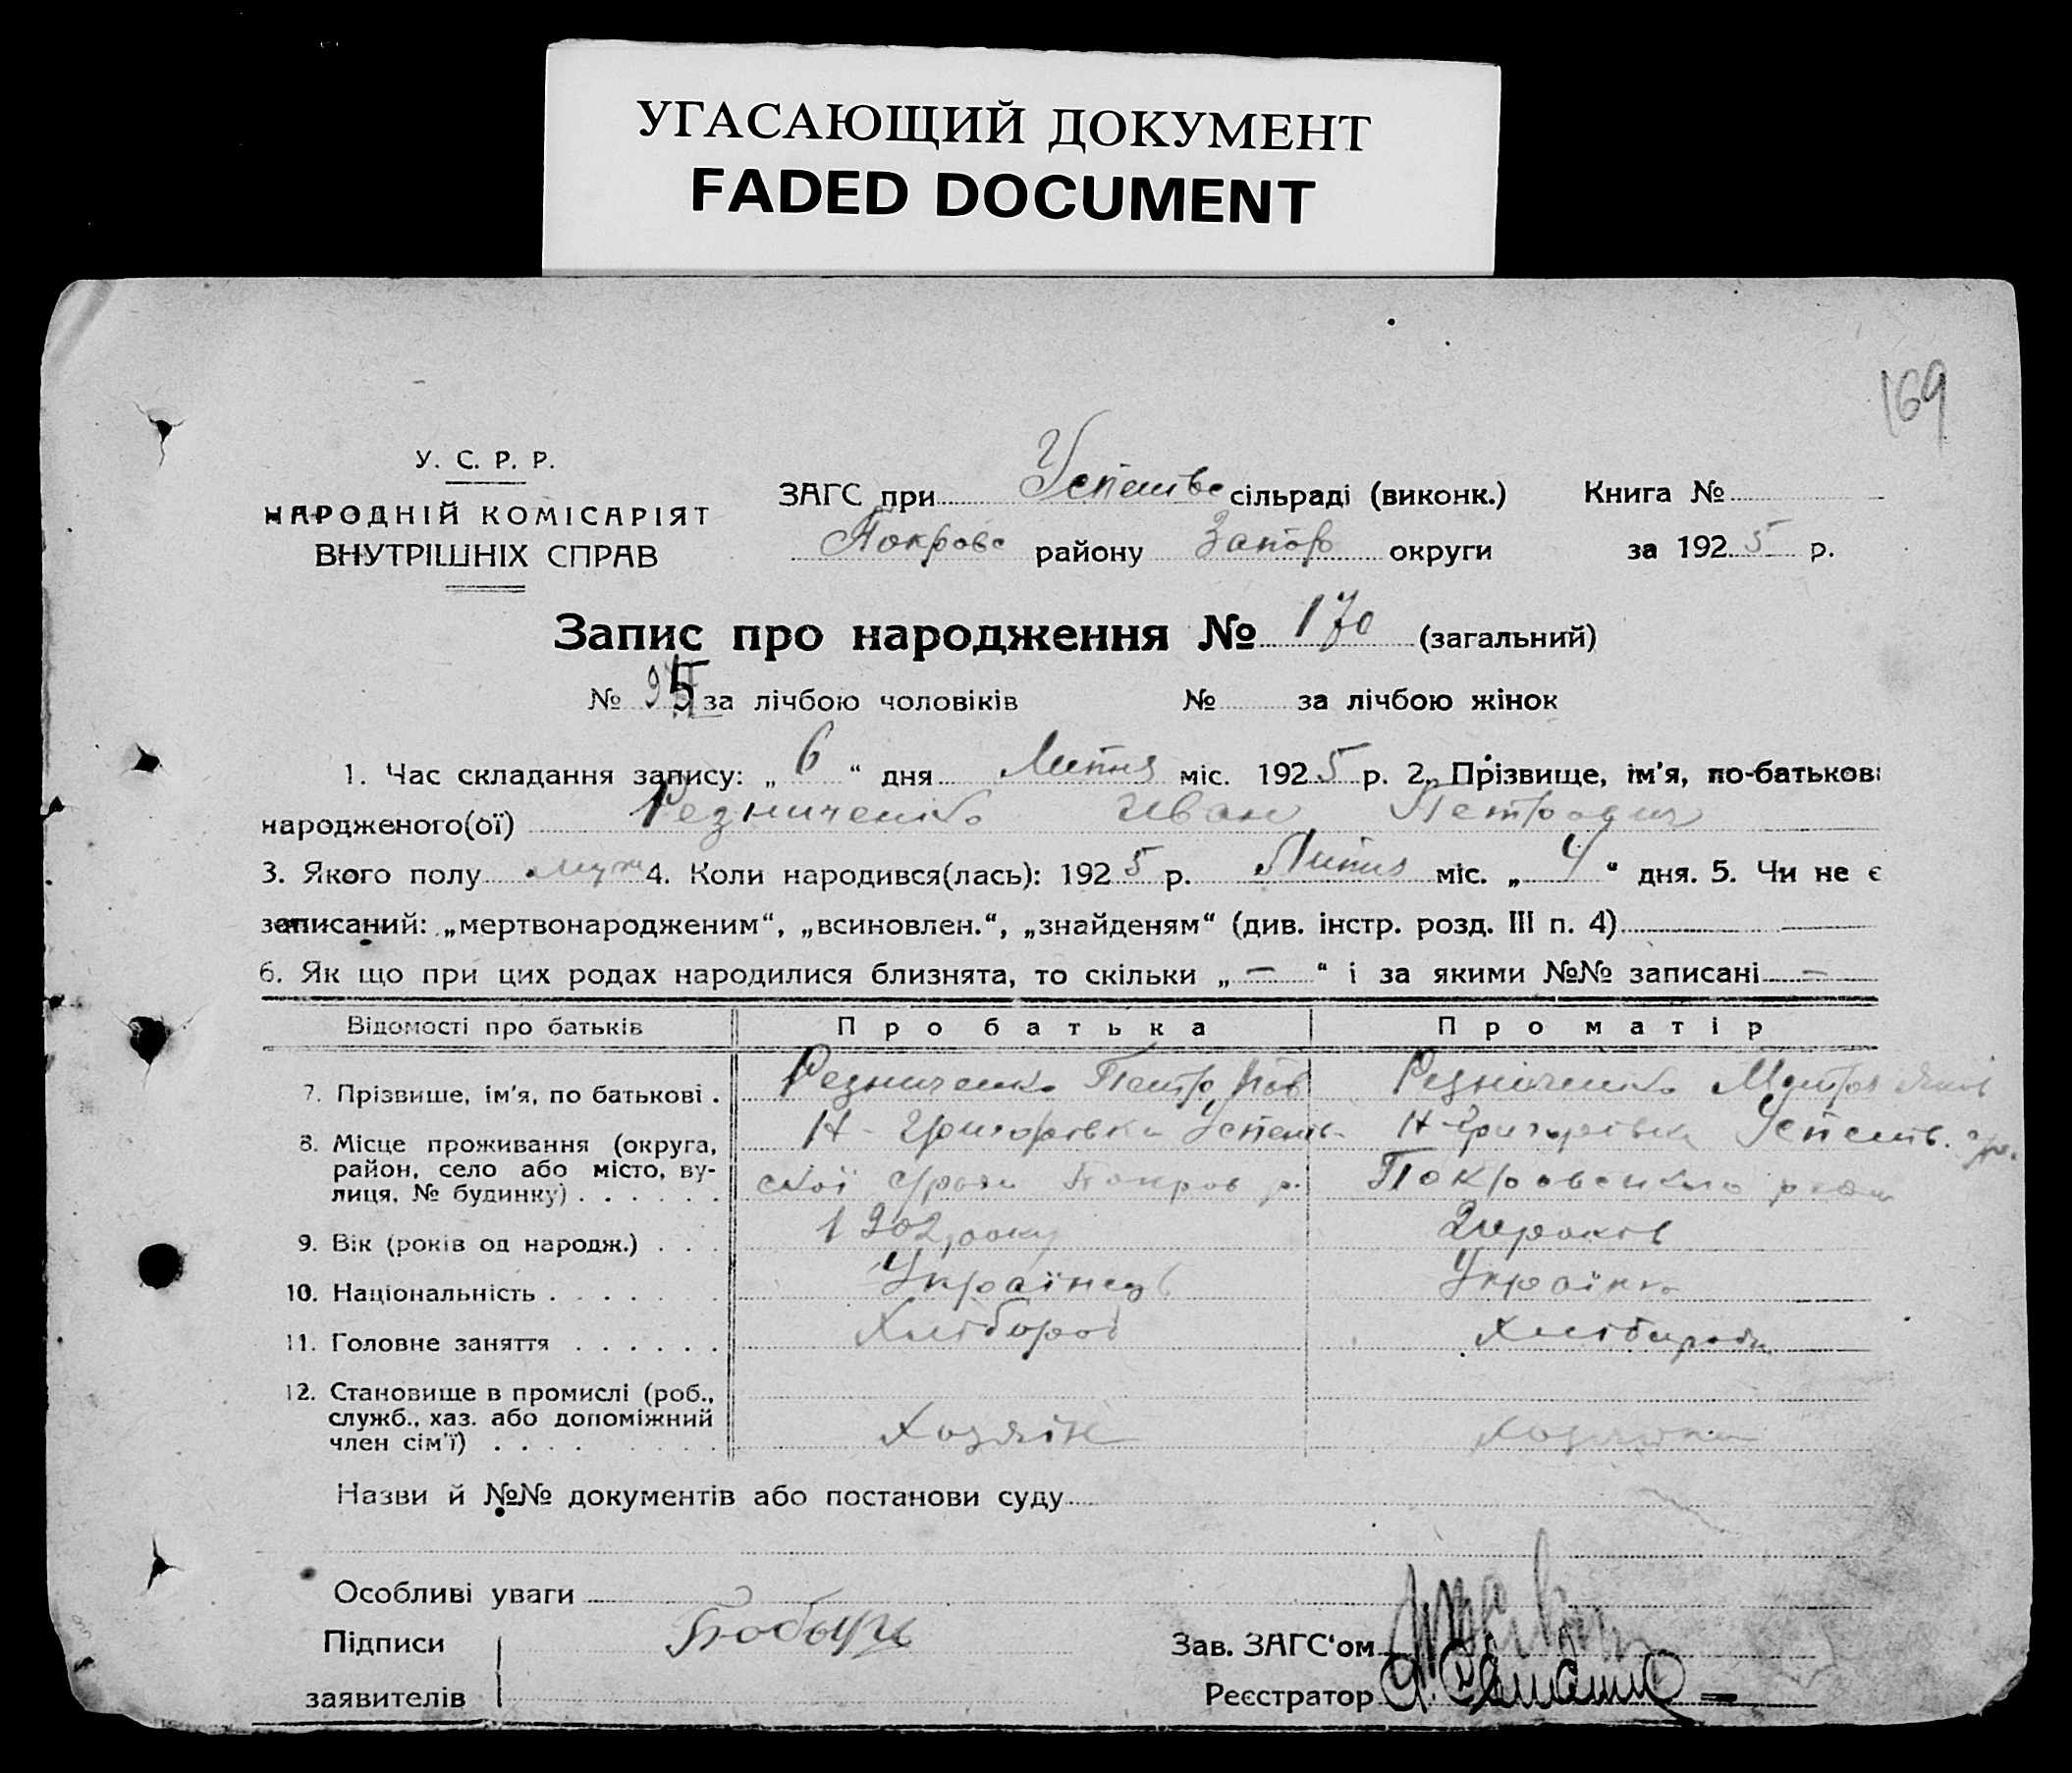 УГАСАЮЩИЙ ДОКУМЕНТ
FADED DOCUMENT
169
У. С. Р. Р.
НАРОДНІЙ КОМІСАРІЯТ
ВНУТРІШНІХ СПРАВ
ЗАГС при Успенівс сільраді (виконк.)
Покровс району Запор округи
Книга №
за 1925 р.
Запис про народження № 170 (загальний)
№ 95 за лічбою чоловіків № за лічбою жінок
1. Час складання запису: „ 6 “ дня Липня міс. 1925 р. 2. Прізвище, ім'я, по-батькові
народженого(ої) Резниченко Иван Петрович
3. Якого полу муж 4. Коли народився(лась): 1925 р. Липня міс. „ 4 “ дня. 5. Чи не є
записаний: „мертвонародженим“, „всиновлен.“, „знайденям“ (див. інстр. розд. III п. 4)
6. Як що при цих родах народилися близнята, то скільки „ — “ і за якими №№ записані —
Відомості про батьків Про батька Про матір
7. Прізвише, ім'я, по батькові . Резниченко Петро Резніченко
8. Місце проживання (округа, Н - Григорівка Успенів- Н-Григорівка Успенів.
район, село або місто, ву-
лиця, № будинку) . . . . . . ској Покров р. Покровського
9. Вік (років од народж.) . . . 1902 року років
10. Національність . . . . . . Українець Українка
11. Головне заняття . . . . . . Хлібороб Хлібороб
12. Становище в промислі (роб.,
служб., хаз. або допоміжний
член сім'ї) . . . . . . . . Хозяїн Хозяйка
Назви й №№ документів або постанови суду
Особливі уваги
Підписи
заявителів
Зав. ЗАГС'ом
Реєстратор